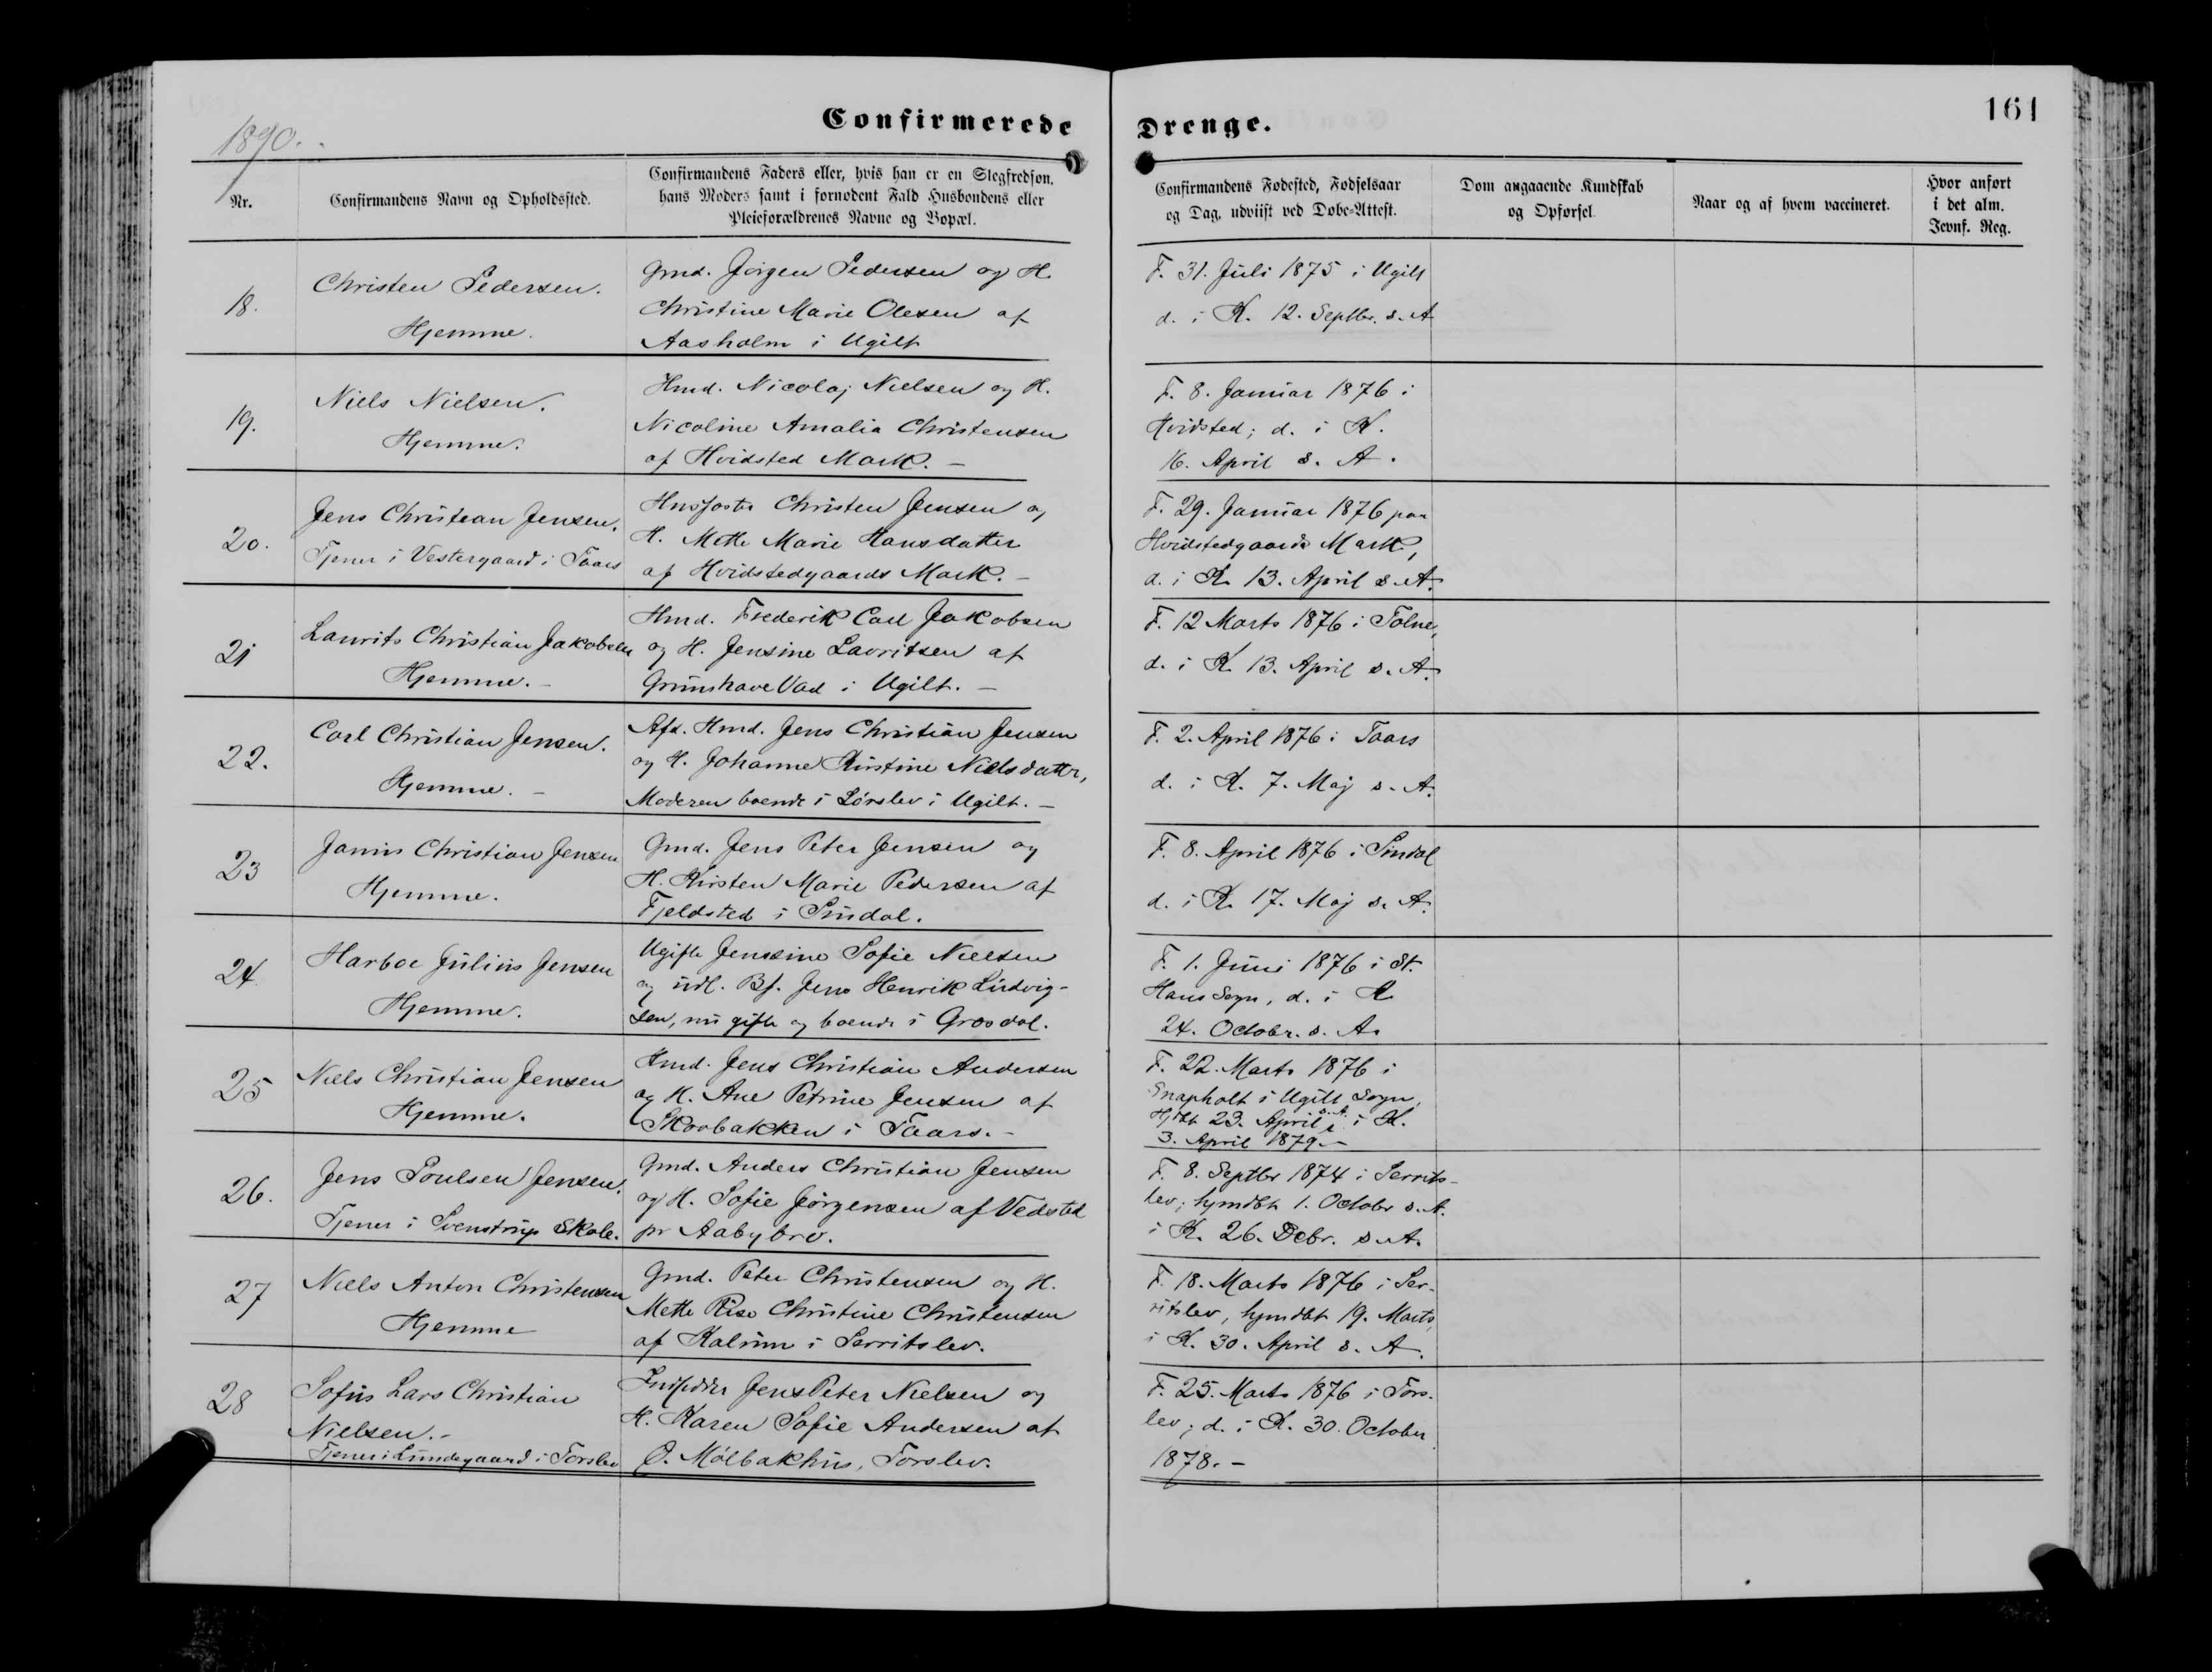 161
Confirmerede Drenge.
1890.
Nr.
Confirmandens Navn og Opholdssted.
Confirmandens Faders eller, hvis han er en Slegfredsøn,
hans Moders samt i fornødent Fald Husbondens eller
Pleieforældrenes Navne og Bopæl.
Confirmandens Fødested, Fødselsaar
og Dag, udviist ved Døbe-Attest.
Dom angaaende Kundskab
og Opførsel.
Naar og af hvem vaccineret.
Hvor anført
i det alm.
Jevnf. Reg.
18.
Christen Pedersen.
Hjemme.
Gmd. Jørgen Pedersen og H.
Christine Marie Olesen af
Aasholm i Ugilt
F. 31. Juli 1875 i Ugilt
d. i K. 12. Septbr. s. A
19.
Niels Nielsen.
Hjemme.
Hmd. Nicolaj Nielsen og H.
Nicoline Amalia Christensen
af Hvidsted Mark. –
F. 8. Januar 1876 i
Hvidsted; d. i K.
16. April s. A.
20.
Jens Christian Jensen.
Tjener i Vestergaard i Taars
Christen Jensen og
H. Mette Marie Hansdatter
af Hvidstedgaards Mark. –
F. 29. Januar 1876 paa
Hvidstedgaards Mark,
d. i K. 13. April s. A.
21
Laurits Christian Jakobsen
Hjemme. –
Hmd. Frederik Carl Jakobsen
og H. Jensine Lavritsen af
Grünshave Vad i Ugilt. –
F. 12 Marts 1876 i Tolne,
d. i K. 13. April s. A.
22.
Carl Christian Jensen.
Hjemme. –
Afd. Hmd. Jens Christian Jensen
og H. Johanne Kirstine Nielsdatter,
Moderen boende i Lørslev i Ugilt. –
F. 2. April 1876 i Taars
d. i K. 7. Maj s. A.
23
Janus Christian Jensen
Hjemme.
Gmd. Jens Peter Jensen og
H. Kirsten Marie Pedersen af
Fjeldsted i Sindal.
F. 8. April 1876 i Sindal
d. i K. 17. Maj s. A.
24
Harboe Julius Jensen
Hjemme.
Ugifte Jensine Sofie Nielsen
og udl. Bf. Jens Henrik Ludvig-
sen, nu gifte og boende i Grosdal.
F. 1. Juni 1876 i St.
Hans Sogn, d. i K
24. Octobr. s. A.
25
Niels Christian Jensen
Hjemme.
Hmd. Jens Christian Andersen
og H. Ane Petrine Jensen af
Skovbakken i Taars. –
F. 22. Marts 1876 i
Snapholt i Ugilt Sogn,
Hjdbt 23. April s. A. i K.
3. April 1879. –
26.
Jens Poulsen Jensen.
Tjener i Svenstrup Skole.
Gmd. Anders Christian Jensen
og H. Sofie Jørgensen af Vedsted
pr Aabybro.
F. 8. Septbr 1874 i Serrits-
lev; hjmdbt 1. Octobr s. A.
i K. 26. Decbr. s. A.
27
Niels Anton Christensen
Hjemme
Gmd. Peter Christensen og H.
Mette Christine Christensen
af Kalrum i Serritslev.
F. 18. Marts 1876 i Ser-
ritslev, hjmdbt 19. Marts,
i K. 30. April s. A.
28
Sofus Lars Christian
Nielsen. –
Tjener i Lundegaard i Torslev
Jens Peter Nielsen og
H. Karen Sofie Andersen af
Ø. Mølbakhus, Torslev.
F. 25. Marts 1876 i Tors-
lev; d. i K. 30. October
1878. –